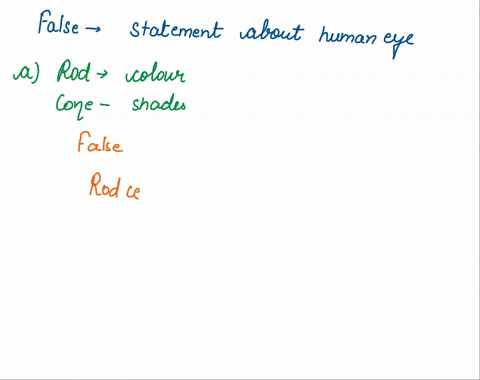 False → statement about human eye
a) Rod → colour
Cone - shades
False
Rod ce